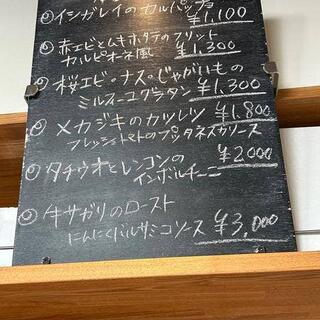 イシガレイのカルパッチョ
¥1,100
赤エビとムキホタテのフリット
カルピオーネ風 ¥1,300
桜エビ・ナス・じゃがいもの
ミルフィーユグラタン ¥1,300
メカジキのカツレツ ¥1,800
フレッシュトマトのプッタネスカソース
タチウオとレンコンの
インボルティーニ ¥2000
牛サガリのロースト
にんにくバルサミコソース ¥3,000